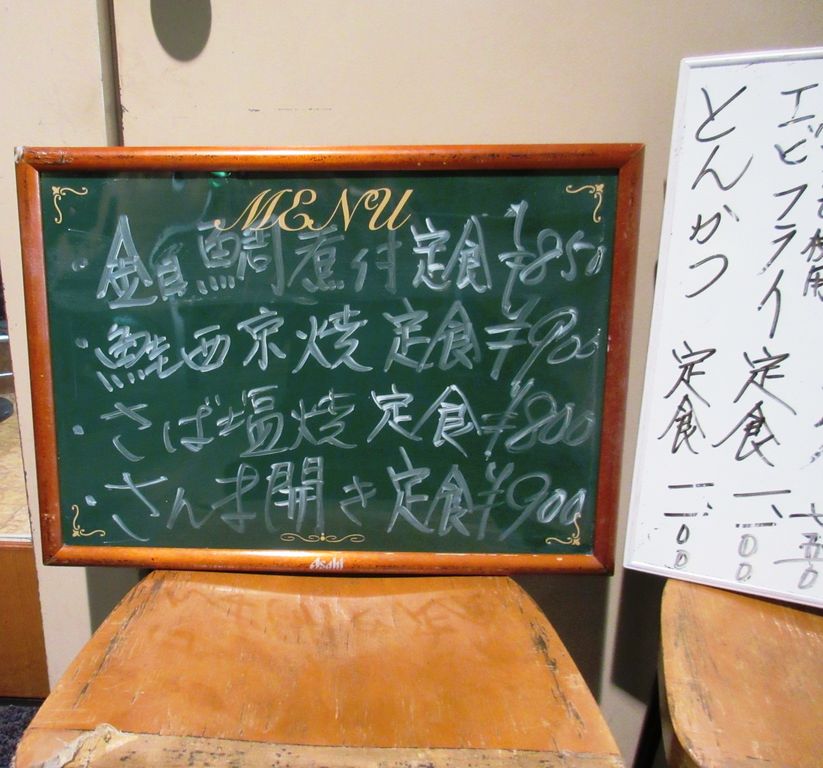 MENU
・金目鯛煮付定食 ¥850
・鮭西京焼定食 ¥900
・さば塩焼定食 ¥800
・さんま開き定食 ¥900
Asahi
使用
エビフライ定食 一、一00
とんかつ 定食 一、一00